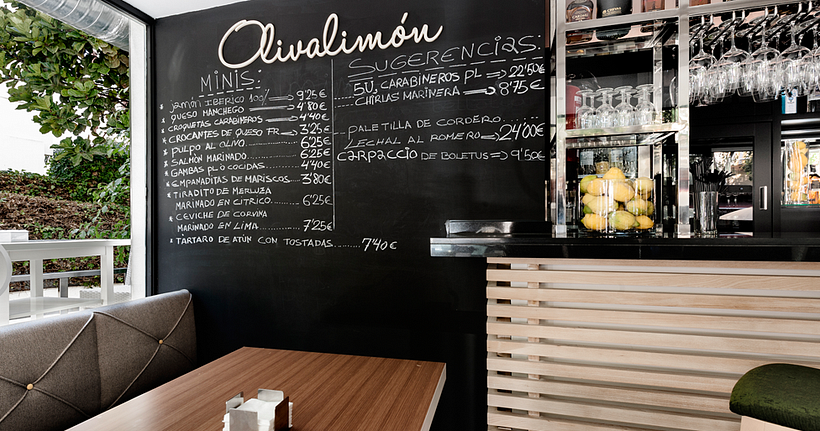 Olivalimón
MINIS:
* Jamón IBERICO 100% 9'25€
* QUESO MANCHEGO 4'80€
* CROQUETAS CARABINEROS 4'40€
* CROCANTES DE QUESO FR. 3'25€
* PULPO AL OLIVO 6'25€
* SALMÓN MARINADO 6'25€
* GAMBAS PL Ó COCIDAS 4'40€
* EMPANADITAS DE MARISCOS 3'80€
* TIRADITO DE MERLUZA
MARINADO EN CITRICO 6'25€
* CEVICHE DE CORVINA
MARINADO EN LIMA 7'25€
* TARTARO DE ATÚN CON TOSTADAS 7'40€
SUGERENCIAS:
5U. CARABINEROS PL 22'50€
CHIRLAS MARINERA 8'75€
PALETILLA DE CORDERO
LECHAL AL ROMERO 24'00€
CARPACCIO DE BOLETUS 9'50€